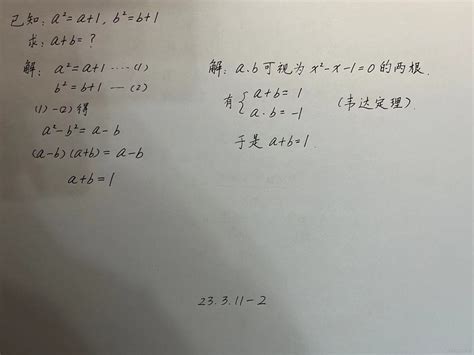 已知: a²=a+1, b²=b+1
求: a+b=?
解: a²=a+1 ····(1)
b²=b+1 —(2)
(1)-(2)得
a²-b²=a-b
(a-b)(a+b)=a-b
a+b=1
解: a.b可视为x²-x-1=0的两根.
有{a+b=1
a·b=-1 (韦达定理)
于是a+b=1.
23.3.11-2